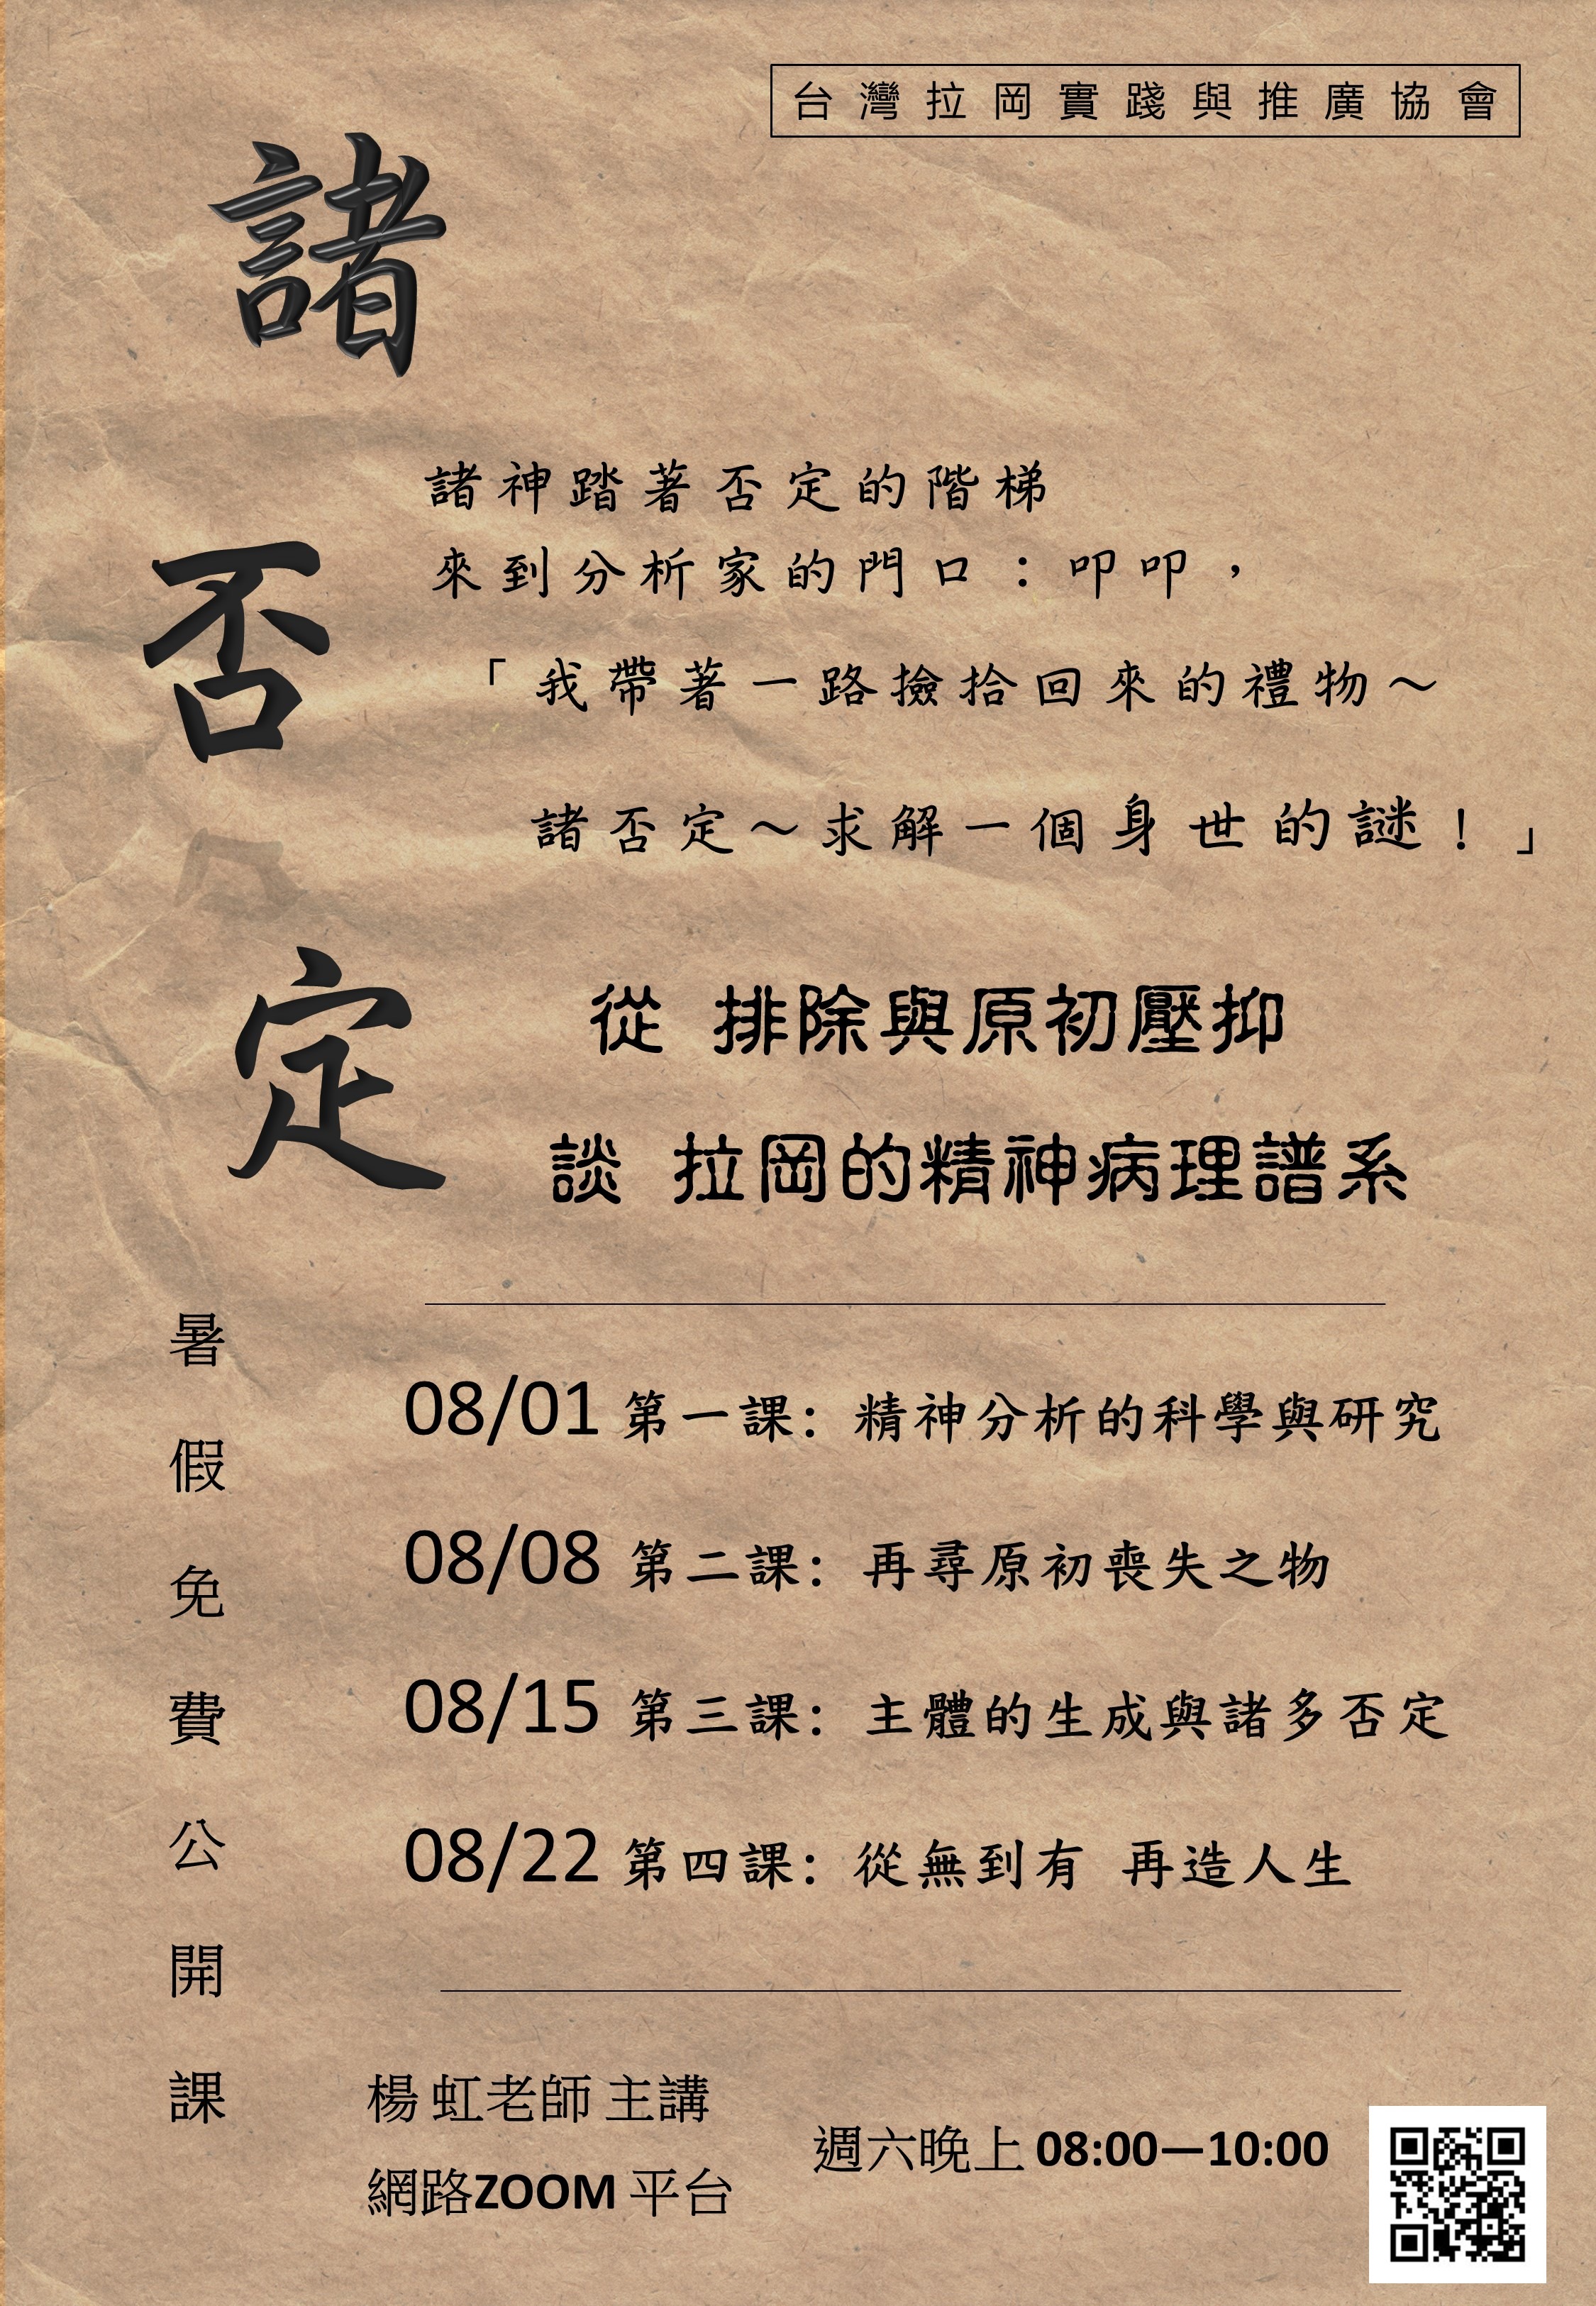 台灣拉岡實踐與推廣協會
諸否定
諸神踏著否定的階梯
來到分析家的門口：叩叩，
「我帶著一路撿拾回來的禮物～
諸否定～求解一個身世的謎！」
從 排除與原初壓抑
談 拉岡的精神病理譜系
暑假免費公開課
08/01 第一課：精神分析的科學與研究
08/08 第二課：再尋原初喪失之物
08/15 第三課：主體的生成與諸多否定
08/22 第四課：從無到有 再造人生
楊 虹老師 主講
網路ZOOM 平台
週六晚上 08:00—10:00